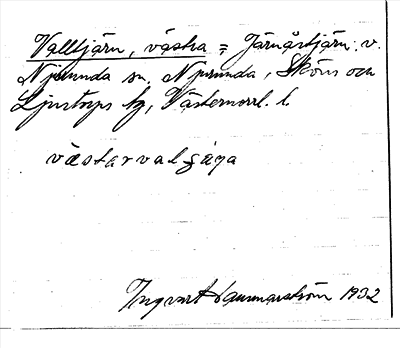 Valltjärn, västra = Järnåstjärn. v.
Njurunda sn. Njurunda, Sköns och
Ljustorps tg, Västernorrl. l.
västarvalgäga
Ingvart Hammarström 1932